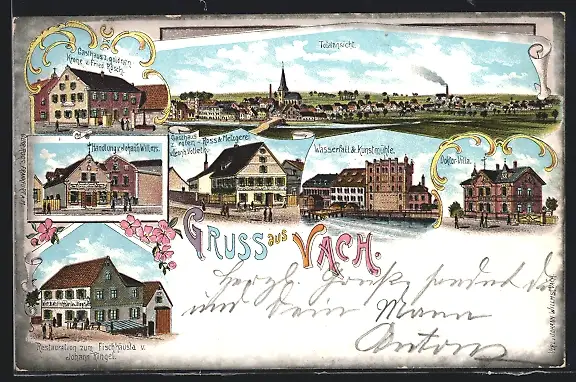 Gasthaus z. goldnen
Krone v. Fried. Räsch.
Totalansicht.
Handlung v. Johann Willers.
Gasthaus
z. roten - Ross & Metzgerei
Wasserfall & Kunstmühle.
Doktor-Villa.
GRUSS aus VACH.
Restauration zum Fischhäusla v.
Johann Ringel.
Herzl. Gruß sendet dir
und dein Mann
Anton